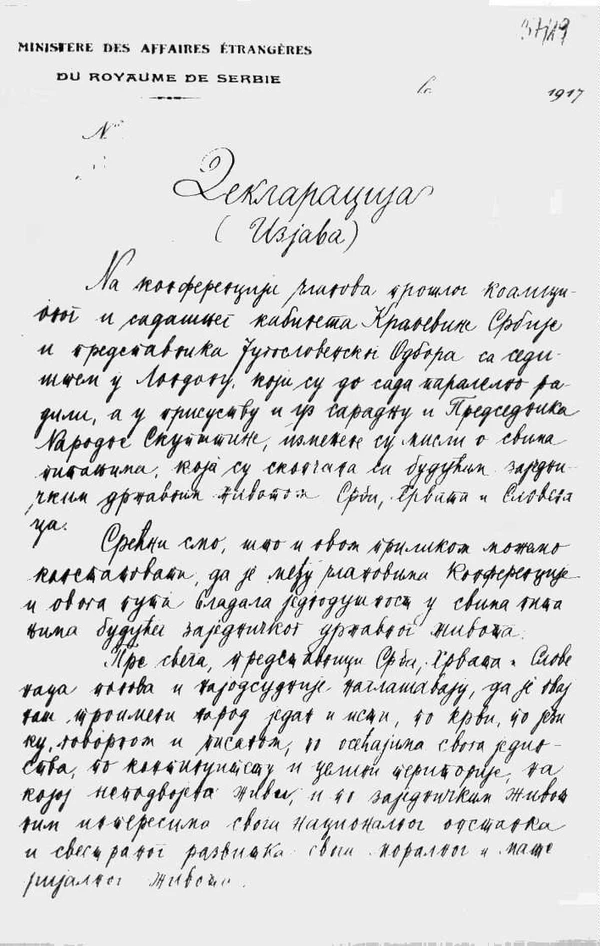 MINISTÈRE DES AFFAIRES ÉTRANGÈRES
DU ROYAUME DE SERBIE
le 1917
№
Декларација
(Изјава)
На конференцији чланова прошлог коалици-
оног и садашњег кабинета Краљевине Србије
и представника Југословенског Одбора са седи-
штем у Лондону, који су до сада паралелно ра-
дили, а у присуству и уз сарадњу и Председника
Народне Скупштине, измењене су мисли о свима
питањима, која су скопчана са будућим заједни-
чким државним животом Срба, Хрвата и Словена
ца.
Срећни смо, што и овом приликом можемо
констатовати, да је међу члановима Конференције
и овога пута владала једнодушност у свима пита
њима будућег заједничког државног живота.
Пре свега, представници Срба, Хрвата и Слове
наца понова и најодсудније наглашавају, да је овај
наш троимени народ један и исти, по крви, по јези
ку, говорном и писаном, по осећајима свога једин-
ства, по континуитету и целини територије, на
којој неподвојено живи, и по заједничким живот
ним интересима свога националног опстанка
и свестраног развитка свога моралног и мате
ријалног живота.